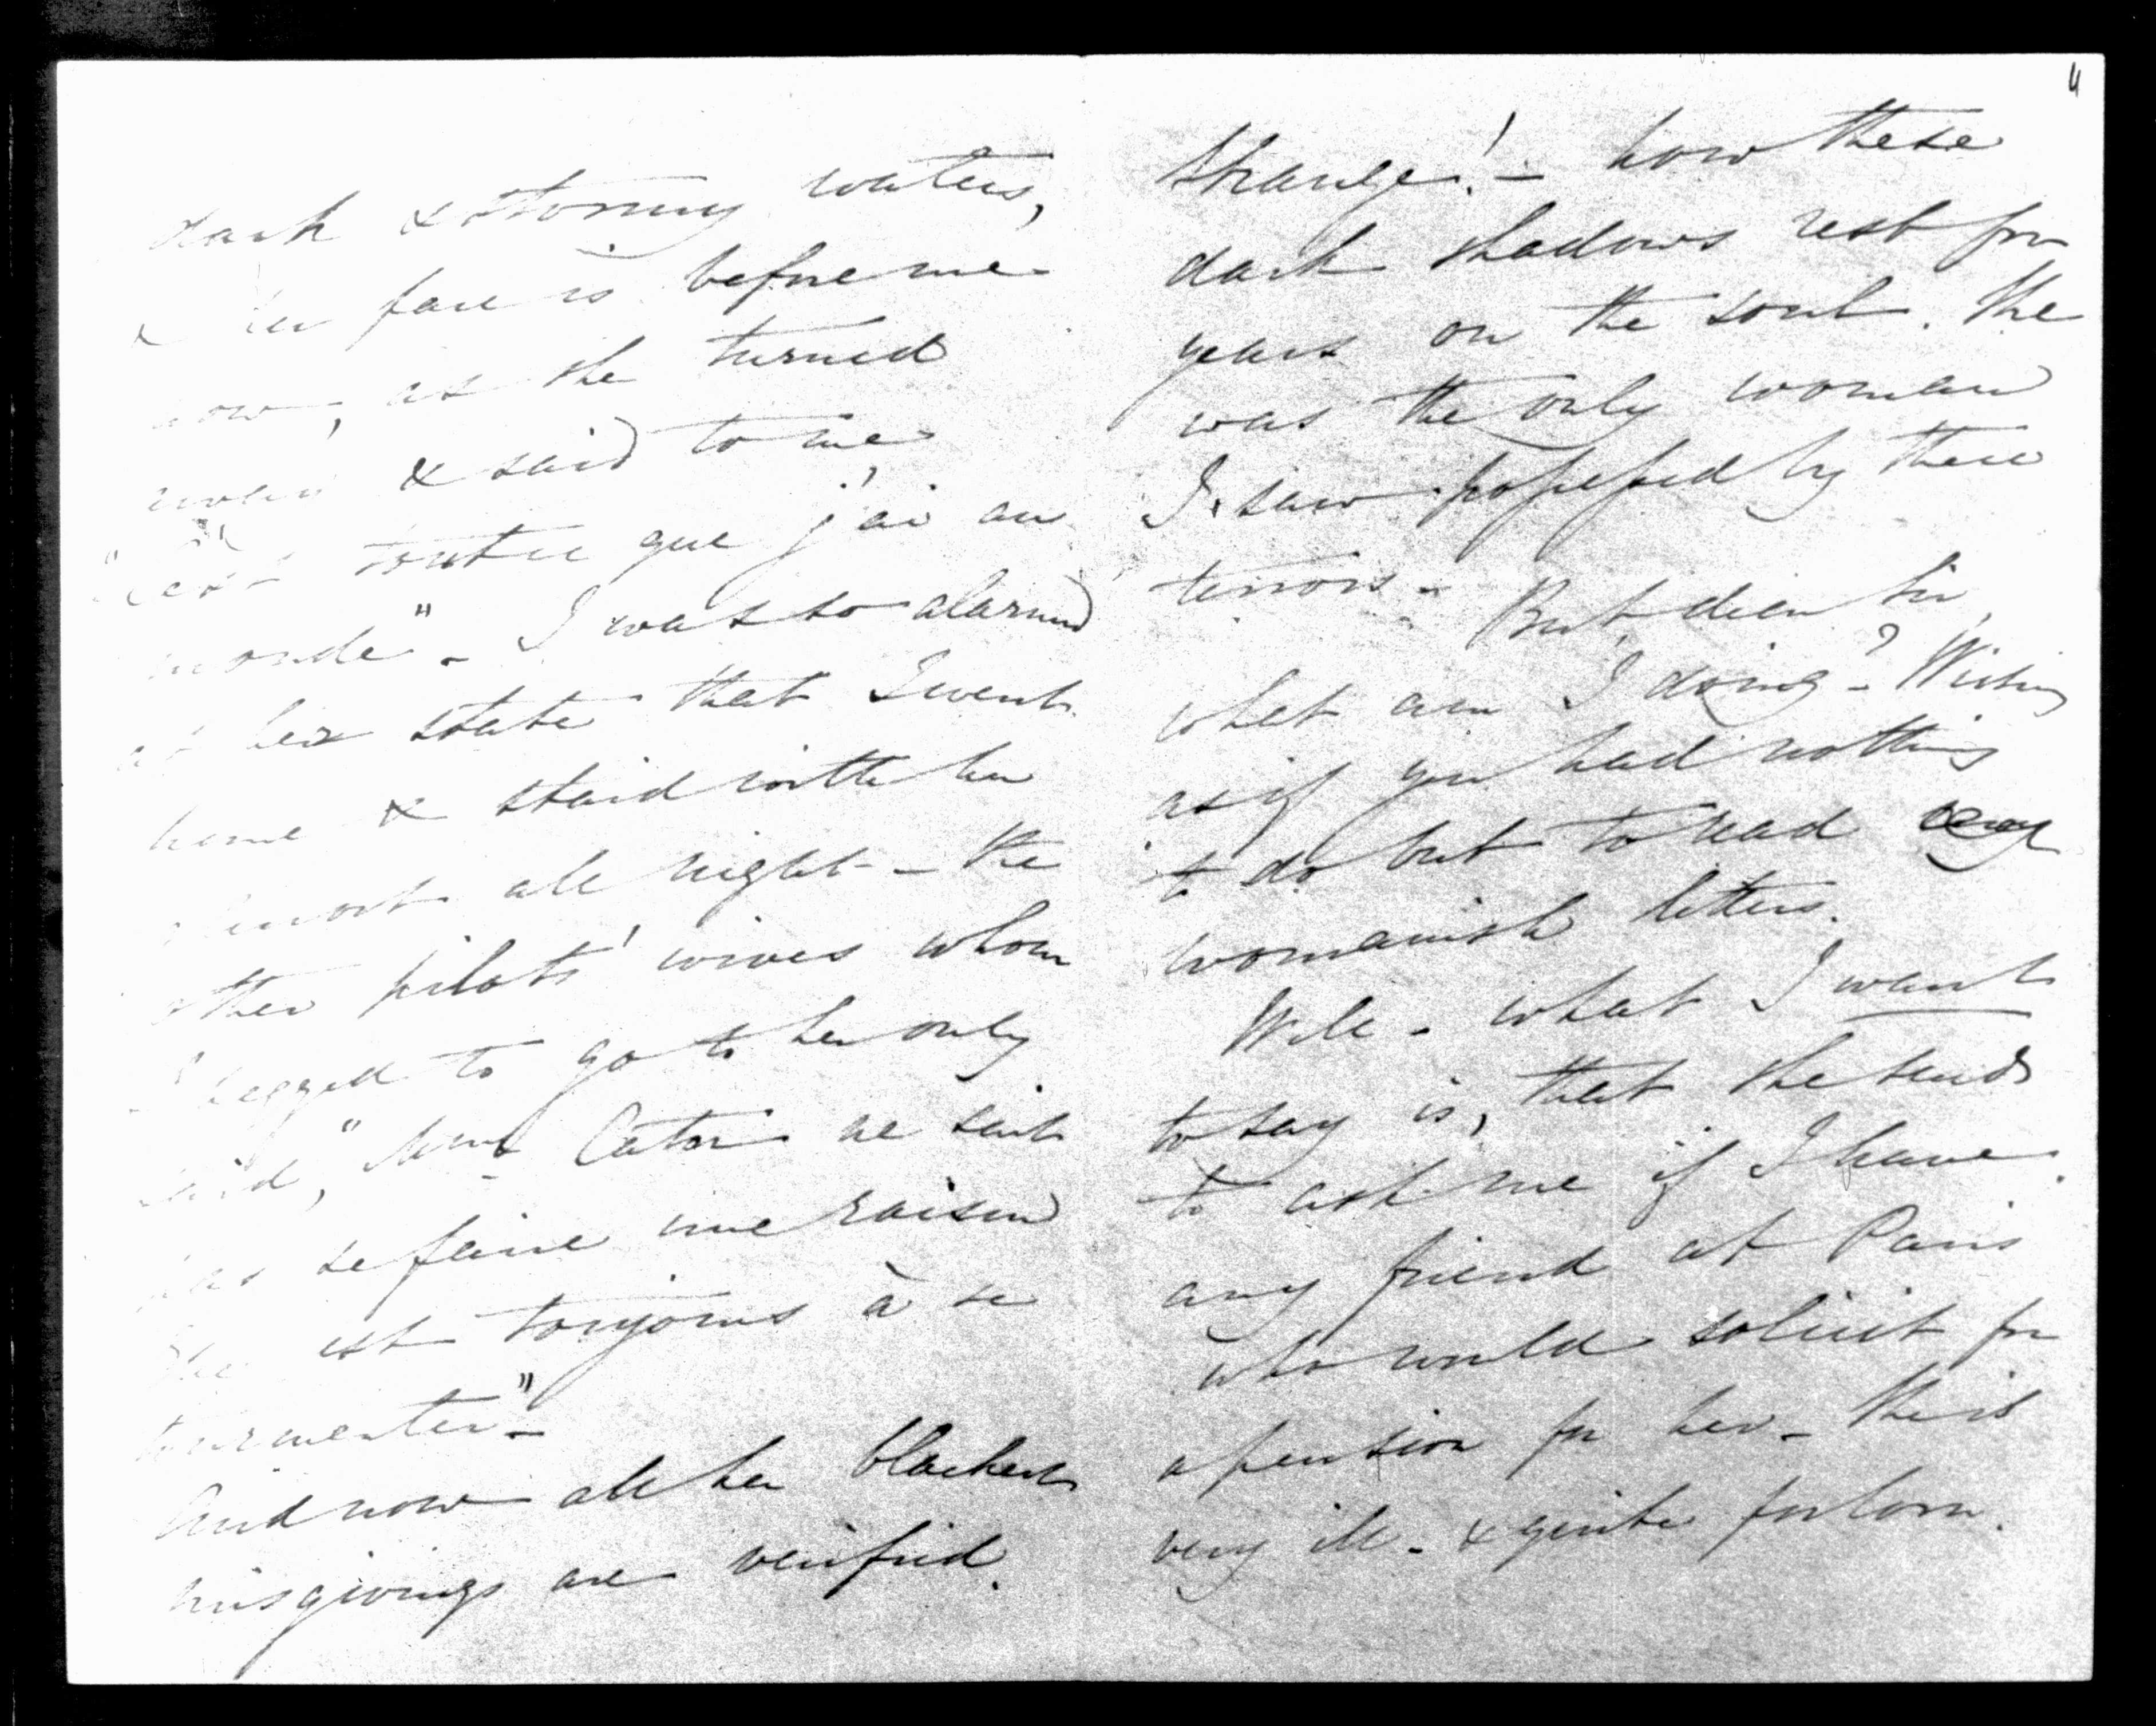 dark & stormy waters,
& her face is before me
now, as she turned
round & said to me
"C'est tout ce que j'ai au
monde" - I was so alarmed
at her state that I went
home & staid with her
almost all night - the
other pilots' wives whom
I begged to go to her only
said, "Mme Caton ne sait
pas se faire une raison
Elle est toujours à se
tourmenter" -
And now all her blackest
misgivings are verified.
11
Strange! - how these
dark shadows rest for
years on the soul. She
was the only woman
I saw possessed by these
terrors - But dear Sir,
what am I doing? - Writing
as if you had nothing
to do but to read
womanish letters.
Well - what I want
to say is, that she sends
to ask me if I have
any friend at Paris
who would solicit for
a pension for her - She is
very ill - & quite forlorn.